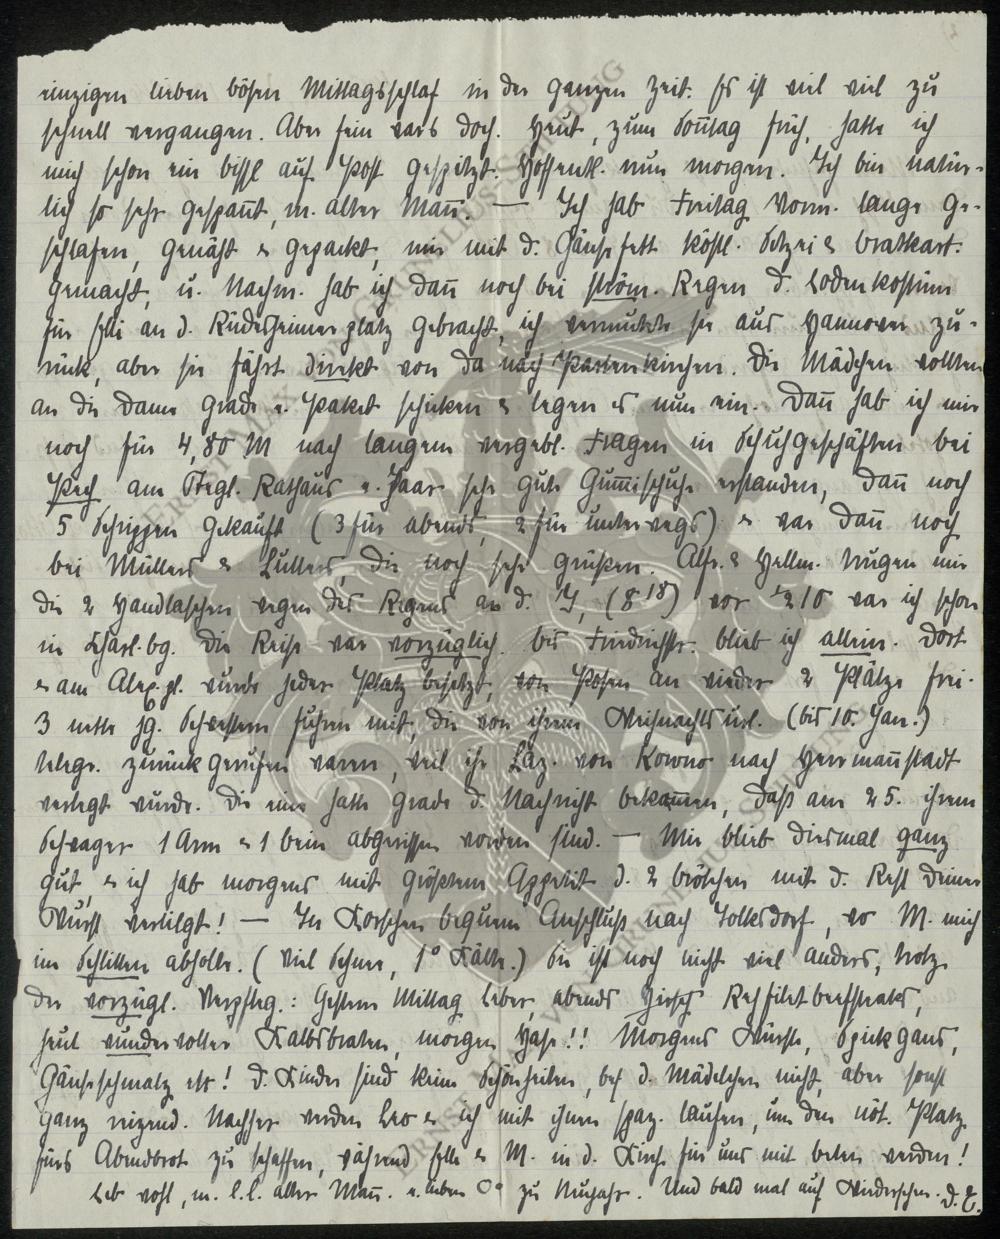 einzigen lieben bösen Mittagsschlaf in der ganzen Zeit. Es ist viel viel zu
schnell vergangen. Aber fein war's doch. Heut, zum Sonntag früh, hatte ich
mich schon ein bissl auf Post gespitzt. Hoffentl. nun morgen. Ich bin natür-
lich so sehr gespannt, m. alter Mann. — Ich hab Freitag Vorm. lange ge-
schlafen, genäht & gepackt, mir mit d. Gänsefett köstl. & Bratkart.
gemacht, u. Nachm. hab ich dann noch bei ström. Regen d. Lodenkostüm
für Elli an d. Rüdesheimerplatz gebracht, ich vermutete sie aus Hannover zu-
rück, aber sie fährt direkt von da nach Partenkirchen. Die Mädchen wollten
an die Dame grade e. Paket schicken & legen es nun ein. Dann hab ich mir
noch für 4,80 M nach langem vergebl. Fragen in Schuhgeschäften bei
Pech am Stegl. Rathaus e. Paar sehr gute Gummischuhe erstanden, dann noch
5 Schrippen gekauft (3 für abends, 2 für unterwegs) & war dann noch
bei Müllers & Lutters, die noch sehr grüßen. Alfr. & Hellm. trugen mir
die 2 Handtaschen wegen des Regens an d. (8¹⁸) vor ½10 war ich schon
in Charl.bg. Die Reise war vorzüglich. bis Friedrichstr. blieb ich allein. Dort
& am Alex.pl. wurde jeder Platz besetzt, von Posen an wieder 2 Plätze frei.
3 nette jg. Schwestern fuhren mit, die von ihrem Weihnachtsurl. (bis 10. Jan.)
telegr. zurückgerufen waren, weil ihr Laz. von Kowno nach Hermannstadt
verlegt wurde. Die eine hatte grade d. Nachricht bekommen, daß am 25. ihrem
Schwager 1 Arm & 1 Bein abgerissen worden sind. — Mir blieb diesmal ganz
gut, & ich hab morgens mit größtem Appetit d. 2 Brötchen mit d. Rest Deiner
Wurst vertilgt! — In Korschen bequem Anschluß nach Tolksdorf, wo M. mich
im Schlitten abholte. (Viel Schnee, 1° Kälte.) Sie ist noch nicht viel anders, trotz
der vorzügl. Verpfleg.: Gestern Mittag Leber, abends Hirsch Rehfiletbeefsteaks,
heut wundervoller Kalbsbraten, morgen Hase!! Morgens Würste, Spickgans,
Gänseschmalz etc! D. Kinder sind keine Schönheiten, bes. d. Mädelchen nicht, aber sonst
ganz reizend. Nachher werden Leo & ich mit ihnen spaz. laufen, um den nöt. Platz
fürs Abendbrot zu schaffen, während Elle & M. in d. Kirche für uns mit beten werden!
Leb wohl, m. l. l. alter Mann. e. lieben zu Neujahr. Und bald mal auf Wiedersehen. D. E.